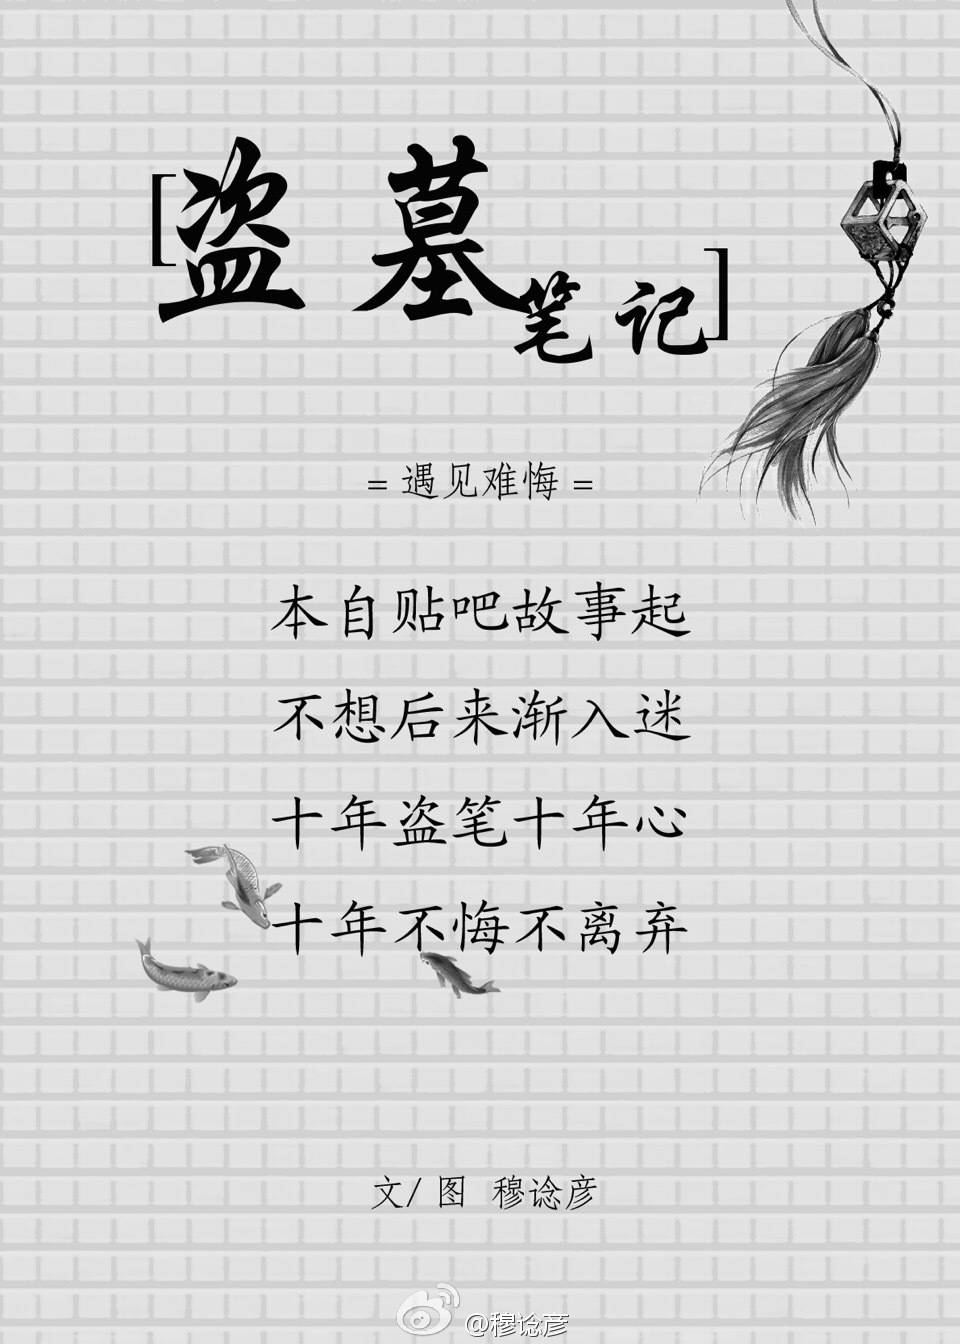 [盗墓笔记]
=遇见难悔=
本自贴吧故事起
不想后来渐入迷
十年盗笔十年心
十年不悔不离弃
文/图 穆谂彦
@穆谂彦